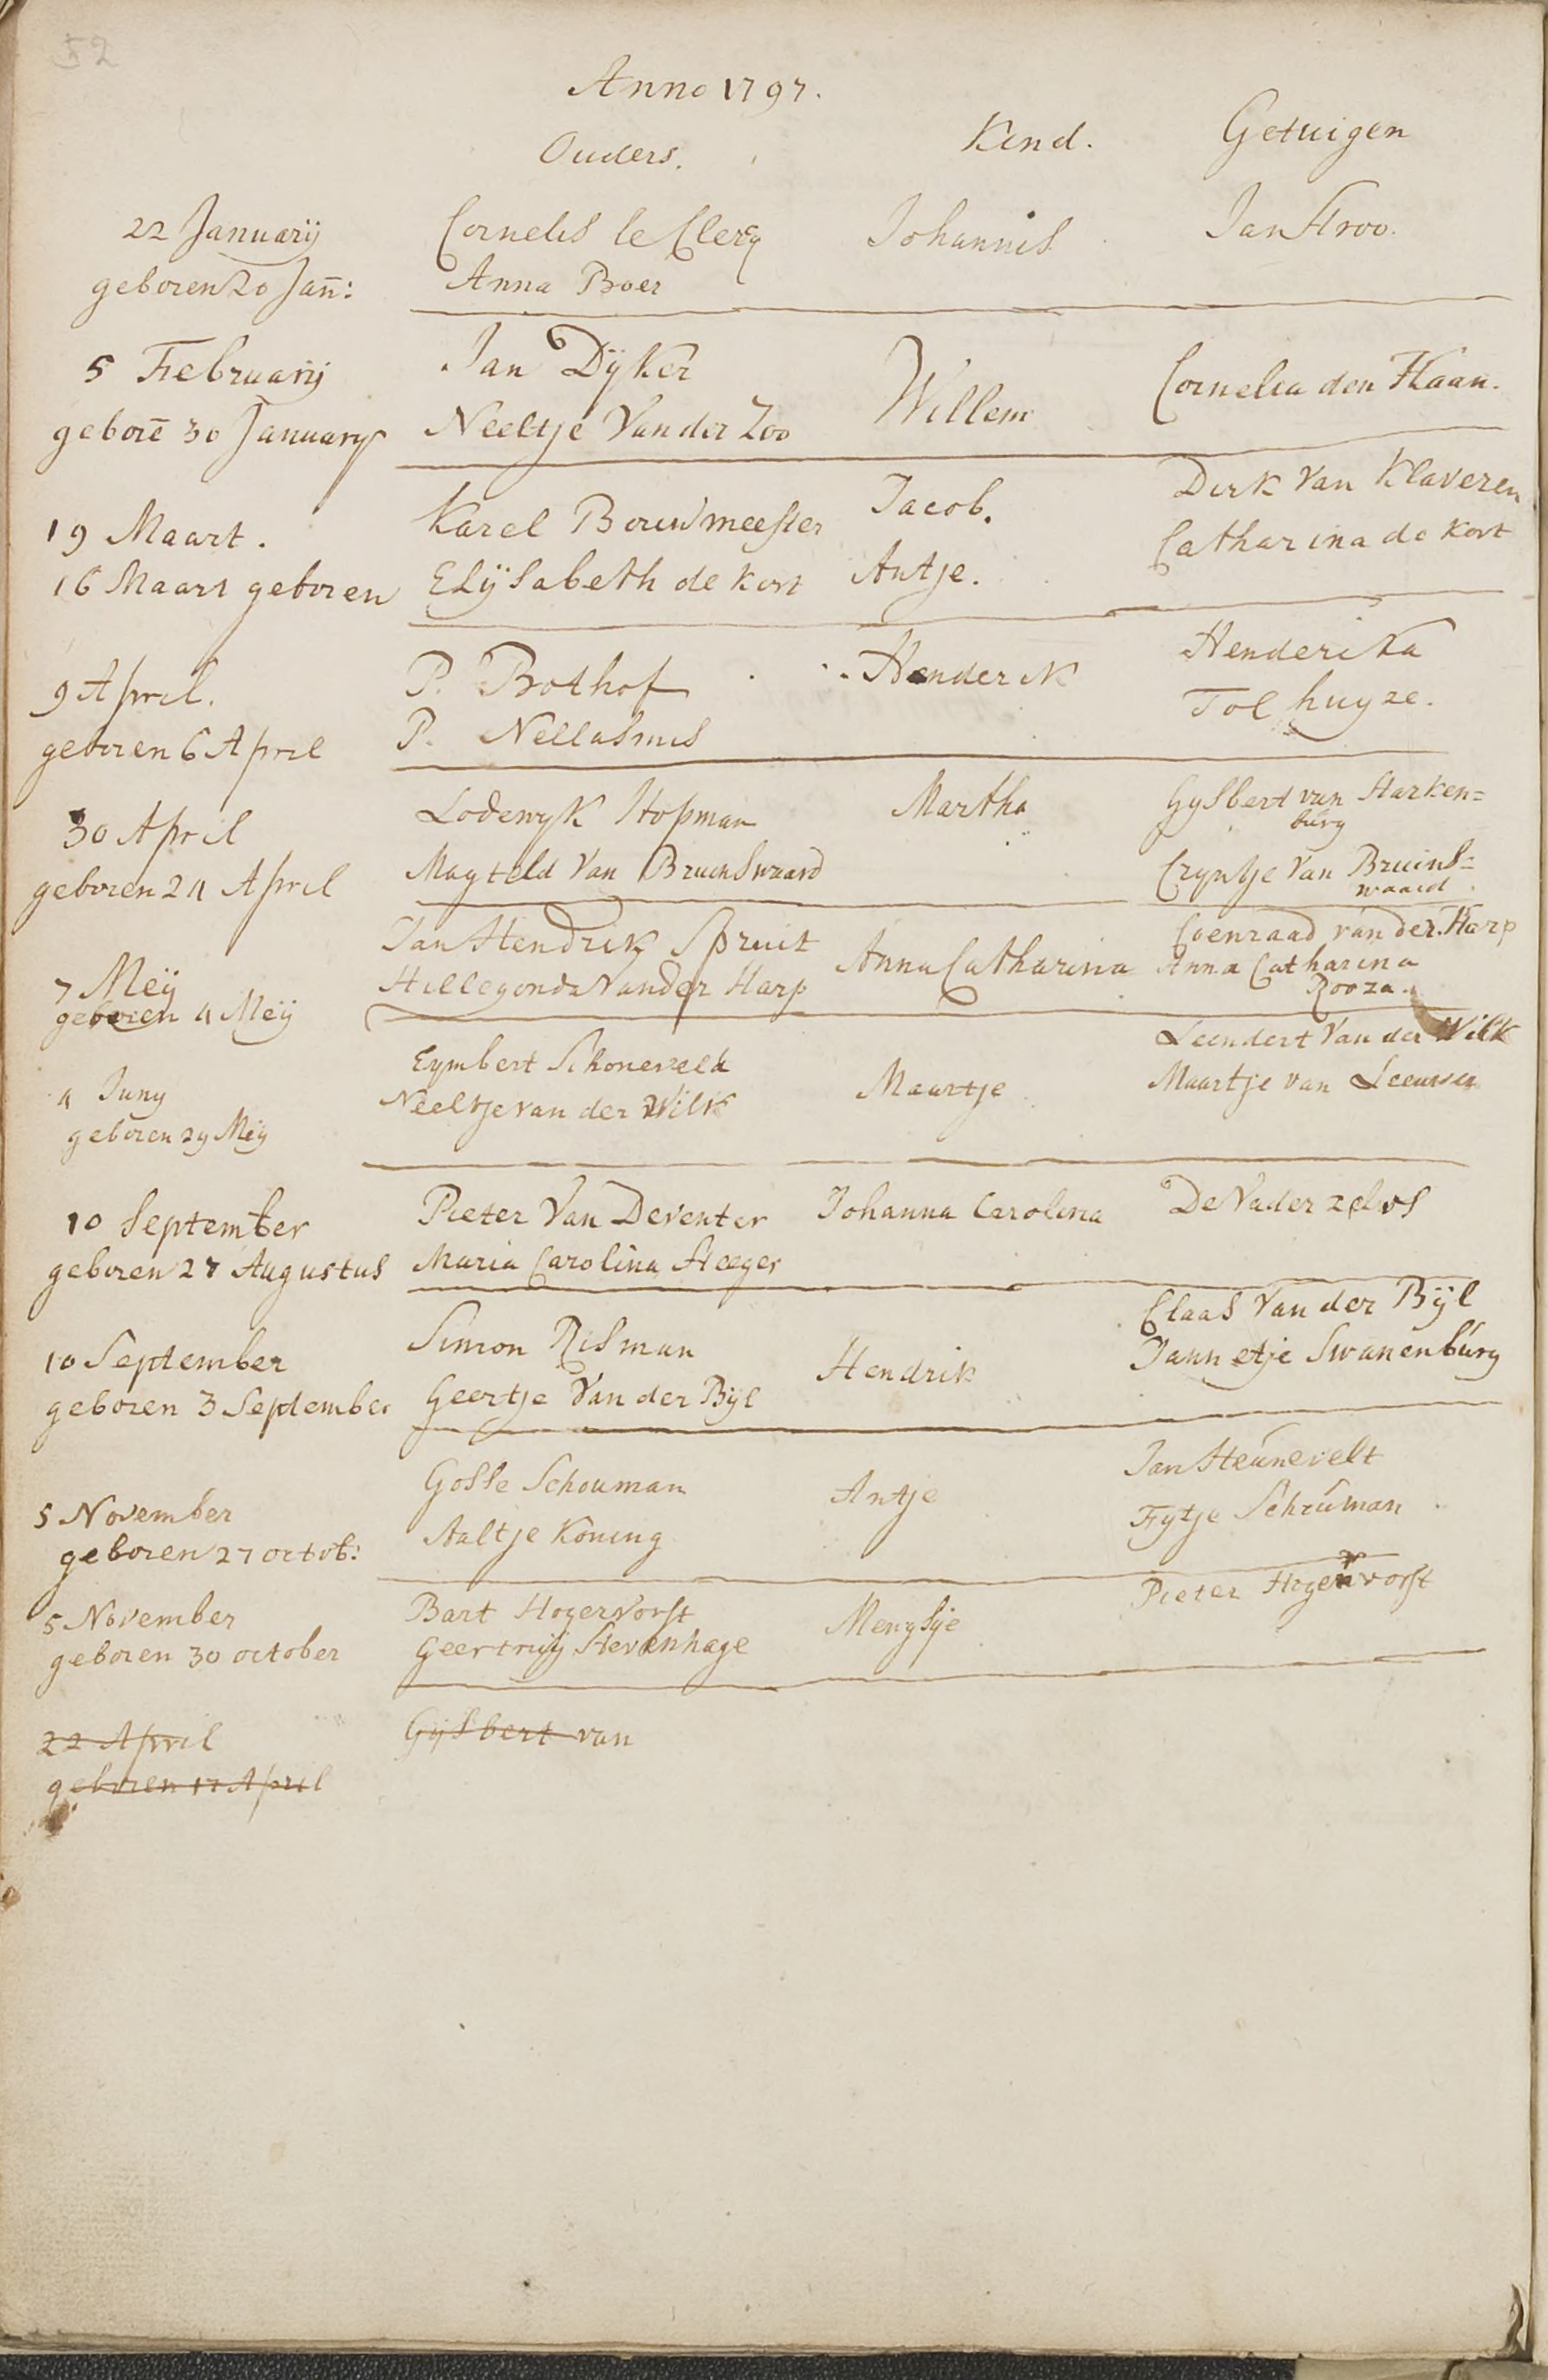 52
Anno 1797.
Ouders. Kind. Getuigen
22 Januarij Cornelis le Clercq Johannis Jan Stroo.
geboren 20 Jan̄: Anna Boer
5 Februarij Jan Dijker Willem Cornelia den Haan.
geborē 30 January Neeltje Van der Zoo
19 Maart. Karel Bouwmeester Jacob. Dirk Van Klaveren
16 Maart geboren Elijsabeth de Kort Antje. Catharina de Kort
9 April. P. Bothof Henderik Henderika
geboren 6 April P. Nellasmis Tolhuyze.
30 April Lodewyk Hopman Martha Gysbert van Starken=
burg
geboren 24 April Magteld Van Bruinswaard Cryntje Van Bruins=
waard
7 Meij Jan Hendrik Spruit Anna Catharina Coenraad van der Harp
geboren 4 Meij Hillegonda Vander Harp Anna Catharina
Rooza.
4 Juny Eymbert Schoneveld Maartje Leendert Van der Wilk
geboren 29 Meij Neeltje van der Wilk Maartje van Leeuwen
10 September Pieter Van Deventer Johanna Carolina De Vader zelvs
geboren 27 Augustus Maria Carolina Steeger
10 September Simon Risman Hendrik Claas Van der Bijl
geboren 3 September Geertje Van der Bijl Jannetje Swanenburg
5 November Gosse Schouman Antje Jan Steunevelt
geboren 27 octob: Aaltje Koning Fytje Schouman
5 November Bart Hogervorst Mengsje Pieter Hogervorst
geboren 30 october Geertruij Stevenhage
22 April Gijsbert van
geboren 17 April